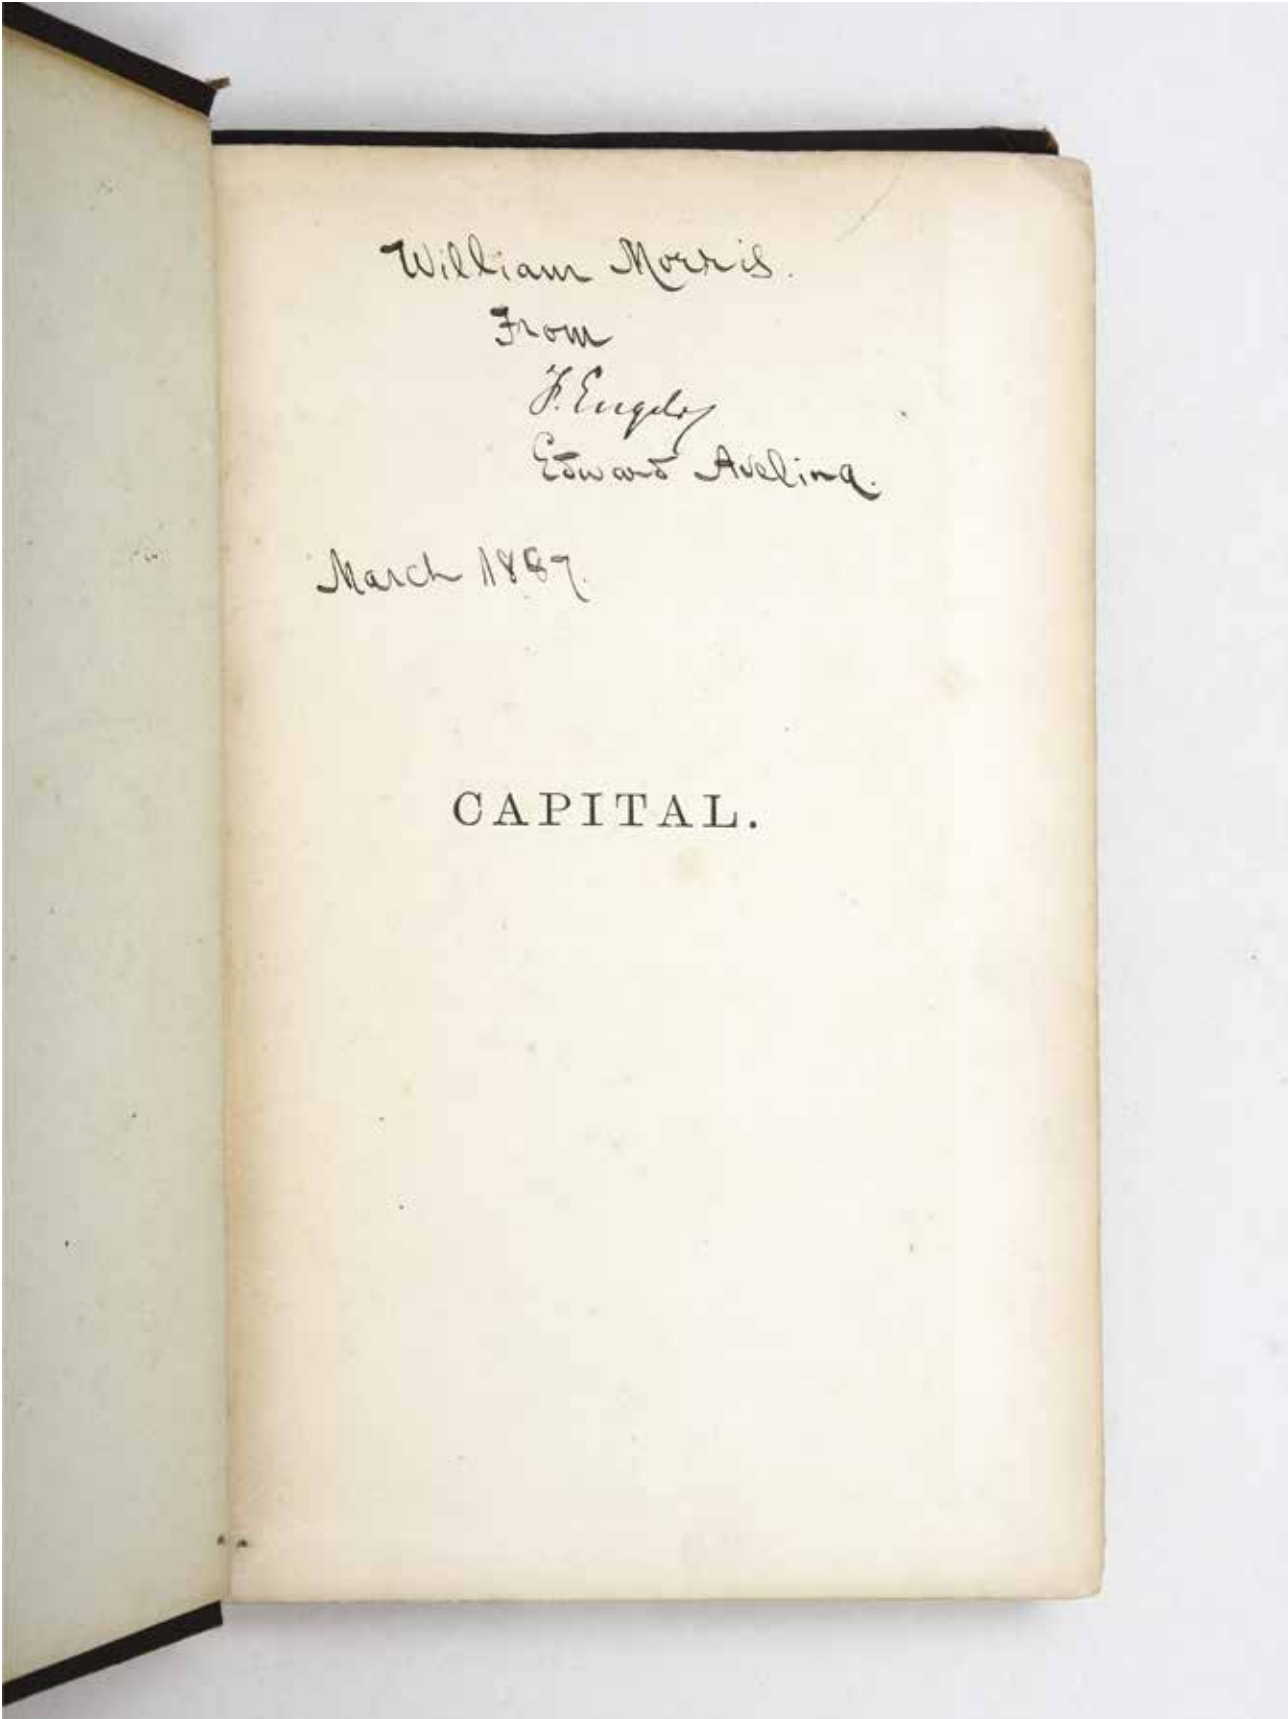 William Morris.
From
F. Engels
Edward Aveling.
March 1887.
CAPITAL.